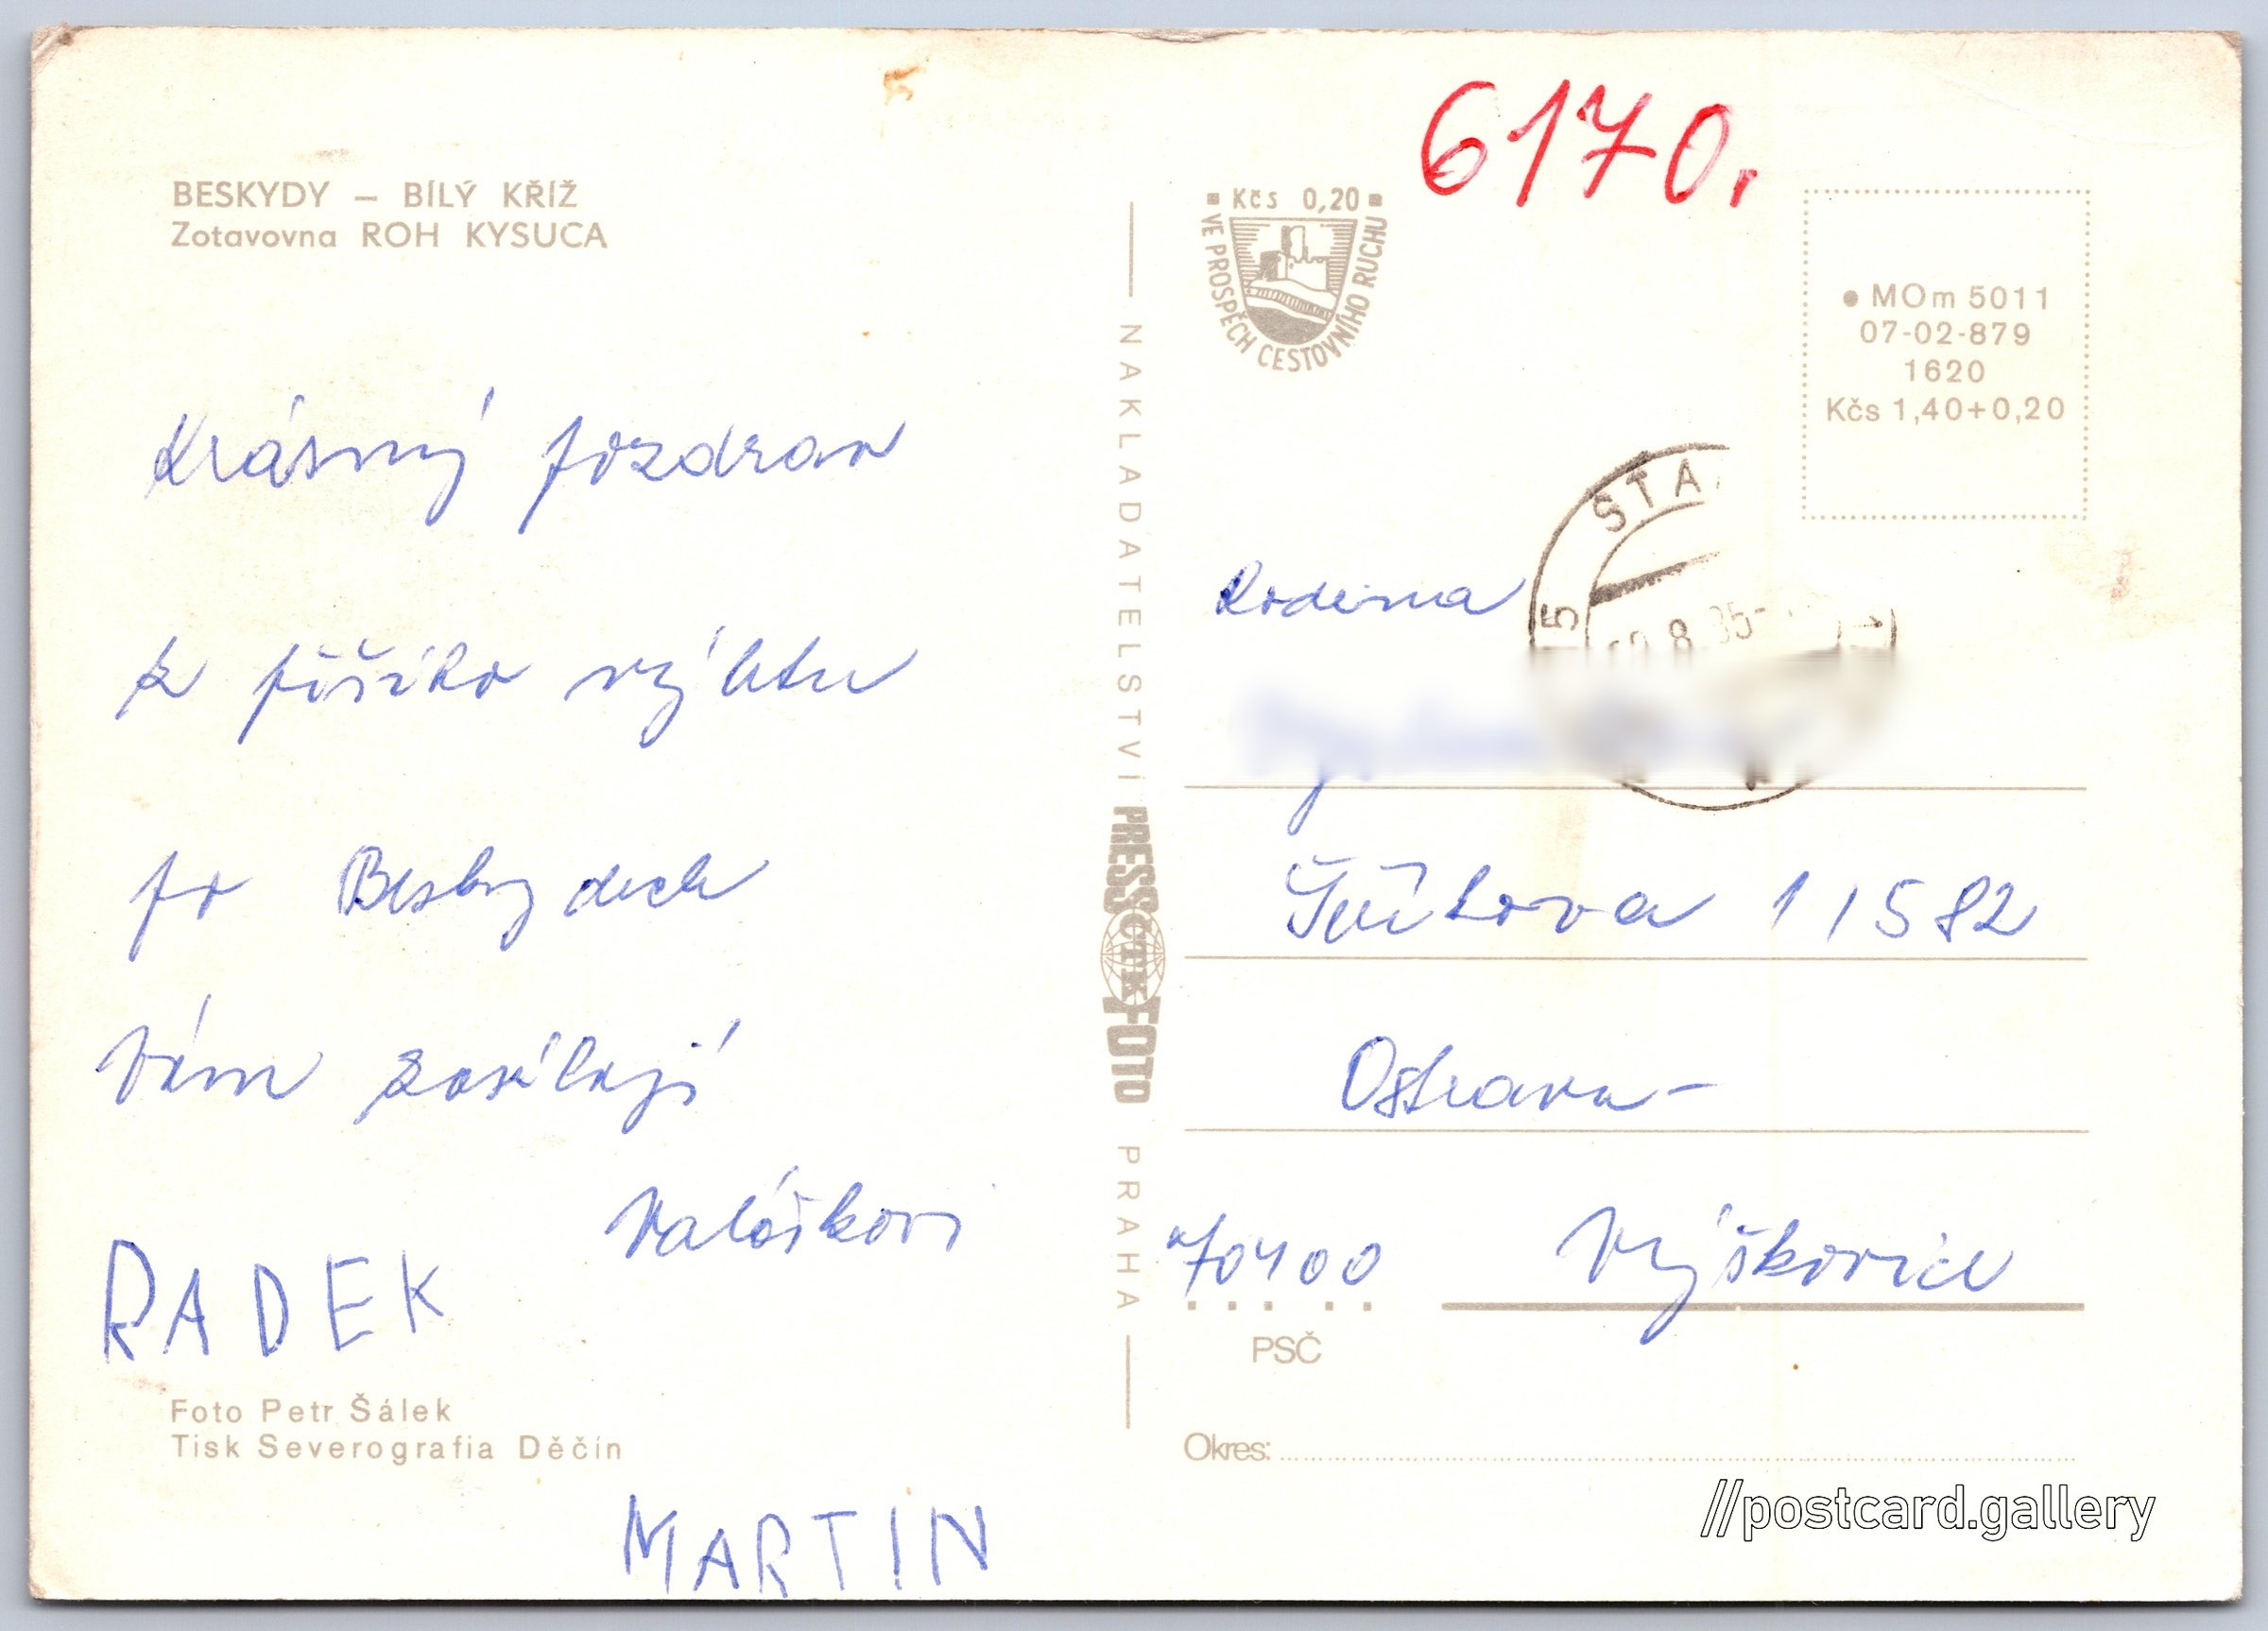 BESKYDY – BÍLÝ KŘÍŽ
Zotavovna ROH KYSUCA
Krásný pozdrav
z pěšího výletu
po Beskydech
Vám zasílají
Valáškovi
RADEK
Foto Petr Šálek
Tisk Severografia Děčín
MARTIN
NAKLADATELSTVÍ PRESSFOTO PRAHA
ČTK
6170.
Kčs 0,20
VE PROSPĚCH CESTOVNÍHO RUCHU
● MOm 5011
07-02-879
1620
Kčs 1,40+0,20
STA
15
8 85-
1
Rodina
11582
Ostrava-
70400 Výškovice
PSČ
Okres:
//postcard.gallery